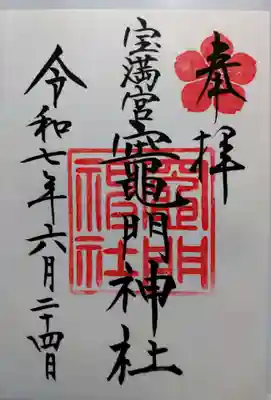 奉拝
宝満宮
竈門神社
竈門神社
令和七年六月二十四日